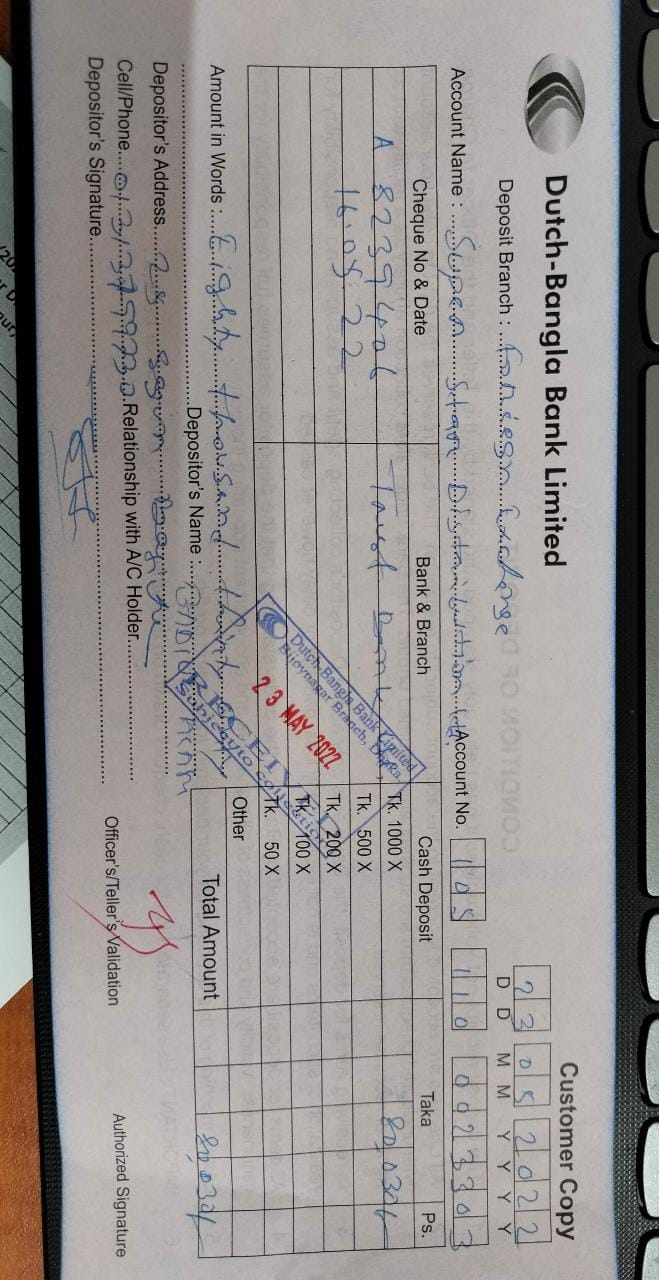 Dutch-Bangla Bank Limited
Customer Copy
Deposit Branch : Foreign Exchange
23 05 2022
D D M M Y Y Y Y
Account Name : Super Star Distribution Ltd. Account No. 105 110 0023303
Cheque No & Date Bank & Branch Cash Deposit Taka Ps.
A 8239406 Trust Bank Tk. 1000 X 80,030/-
16.05.22 Tk. 500 X
Tk. 200 X
Tk. 100 X
Tk. 50 X
Other
Total Amount 80,030/-
Dutch Bangla Bank Limited
Bijoynagar Branch, Dhaka.
23 MAY 2022
RECEIVED
Subject to collection
Amount in Words : Eighty thousand thirty
Depositor's Name :
Depositor's Address 28 Segun Bagicha
Cell/Phone Relationship with A/C Holder
Depositor's Signature
Officer's/Teller's Validation
Authorized Signature